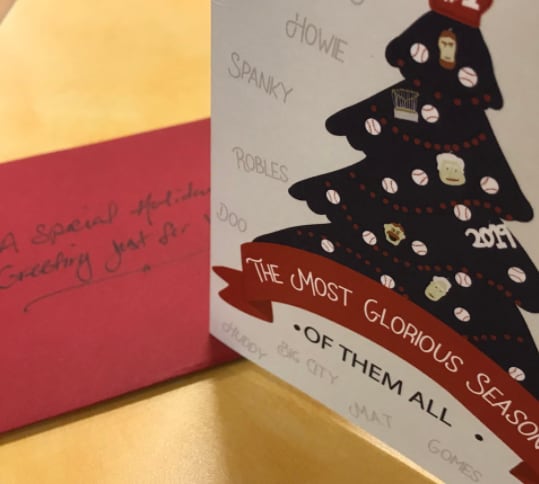 #1
HOWIE
SPANKY
ROBLES
DOO
2019
THE MOST GLORIOUS SEASON
• OF THEM ALL •
HUDDY
BIG CITY
MAT
GOMES
A Special Holiday
Greeting Just for